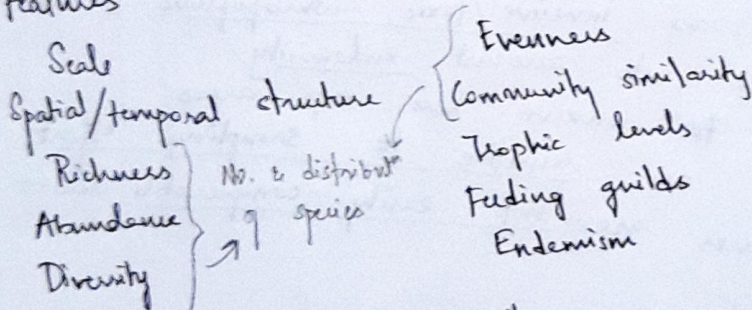 features
Scale
Spatial/temporal structure
Richness
Abundance
Diversity
No. & distributⁿ
of species
Evenness
Community similarity
Trophic levels
Feeding guilds
Endemism